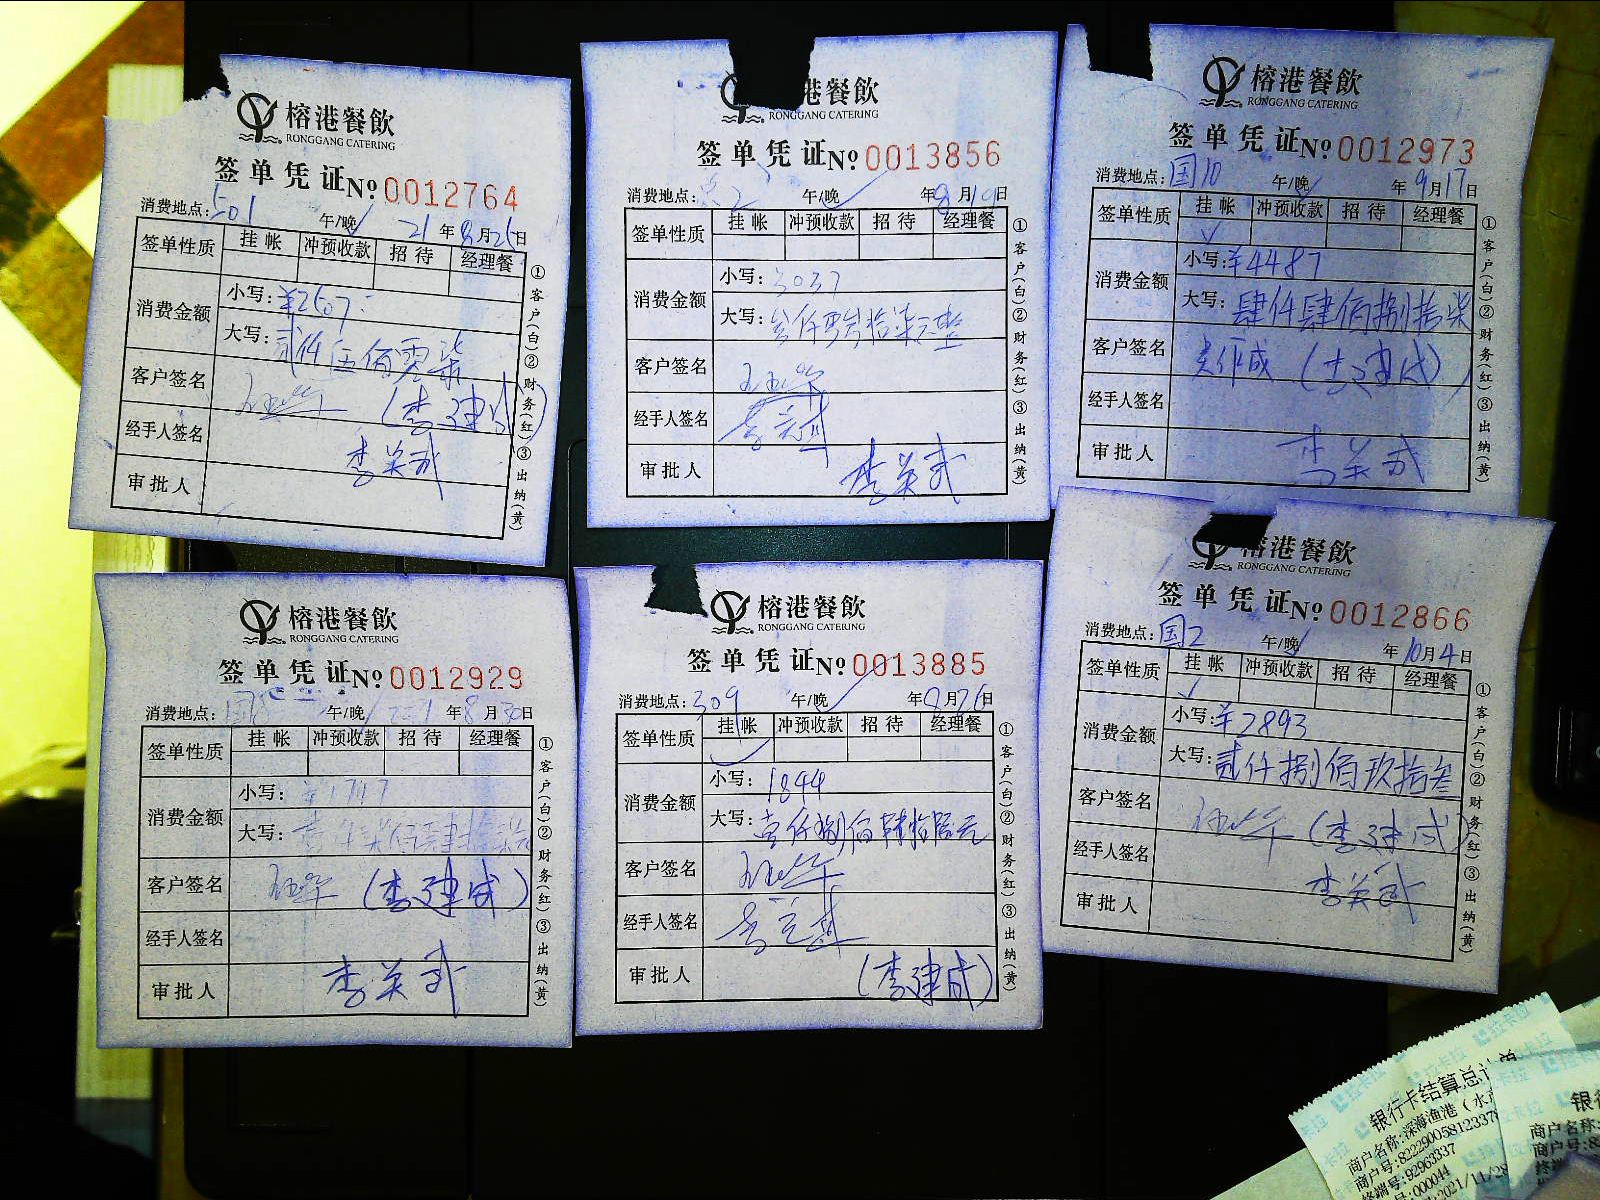 榕港餐飲
RONGGANG CATERING
签单凭证 №0012764
消费地点：501 午/晚 21年8月25日
签单性质 挂帐 冲预收款 招待 经理餐
消费金额 小写：¥2507
大写：贰仟伍佰零柒
客户签名 (李建成)
经手人签名 李英武
审批人
①客户(白)②财务(红)③出纳(黄)
港餐飲
RONGGANG CATERING
签单凭证 №0013856
消费地点： 2 午/晚 年9月19日
签单性质 挂帐 冲预收款 招待 经理餐
消费金额 小写：3037
大写：叁仟零叁拾柒元整
客户签名
经手人签名
审批人 李英武
①客户(白)②财务(红)③出纳(黄)
榕港餐飲
RONGGANG CATERING
签单凭证 №0012973
消费地点：国10 午/晚 年9月17日
签单性质 挂帐 冲预收款 招待 经理餐
消费金额 小写：¥4487
大写：肆仟肆佰捌拾柒
客户签名 (李建成)
经手人签名
审批人 李英武
①客户(白)②财务(红)③出纳(黄)
榕港餐飲
RONGGANG CATERING
签单凭证 №0012929
消费地点： 午/晚 2021年8月30日
签单性质 挂帐 冲预收款 招待 经理餐
消费金额 小写：¥1747
大写：壹仟柒佰肆拾柒元
客户签名 (李建成)
经手人签名
审批人 李英武
①客户(白)②财务(红)③出纳(黄)
榕港餐飲
RONGGANG CATERING
签单凭证 №0013885
消费地点：309 午/晚 年9月26日
签单性质 挂帐 冲预收款 招待 经理餐
消费金额 小写：1844
大写：壹仟捌佰肆拾肆元
客户签名
经手人签名
审批人 (李建成)
①客户(白)②财务(红)③出纳(黄)
榕港餐飲
RONGGANG CATERING
签单凭证 №0012866
消费地点：国2 午/晚 年10月4日
签单性质 挂帐 冲预收款 招待 经理餐
消费金额 小写：¥2893
大写：贰仟捌佰玖拾叁
客户签名 (李建成)
经手人签名 李英武
审批人
①客户(白)②财务(红)③出纳(黄)
银行卡结算总计单
商户名称:深海渔港(水产
商户号:8222900581233
终端号:92963337
:000044
2021/11/28
银行
商户名称:
商户号:8
终端